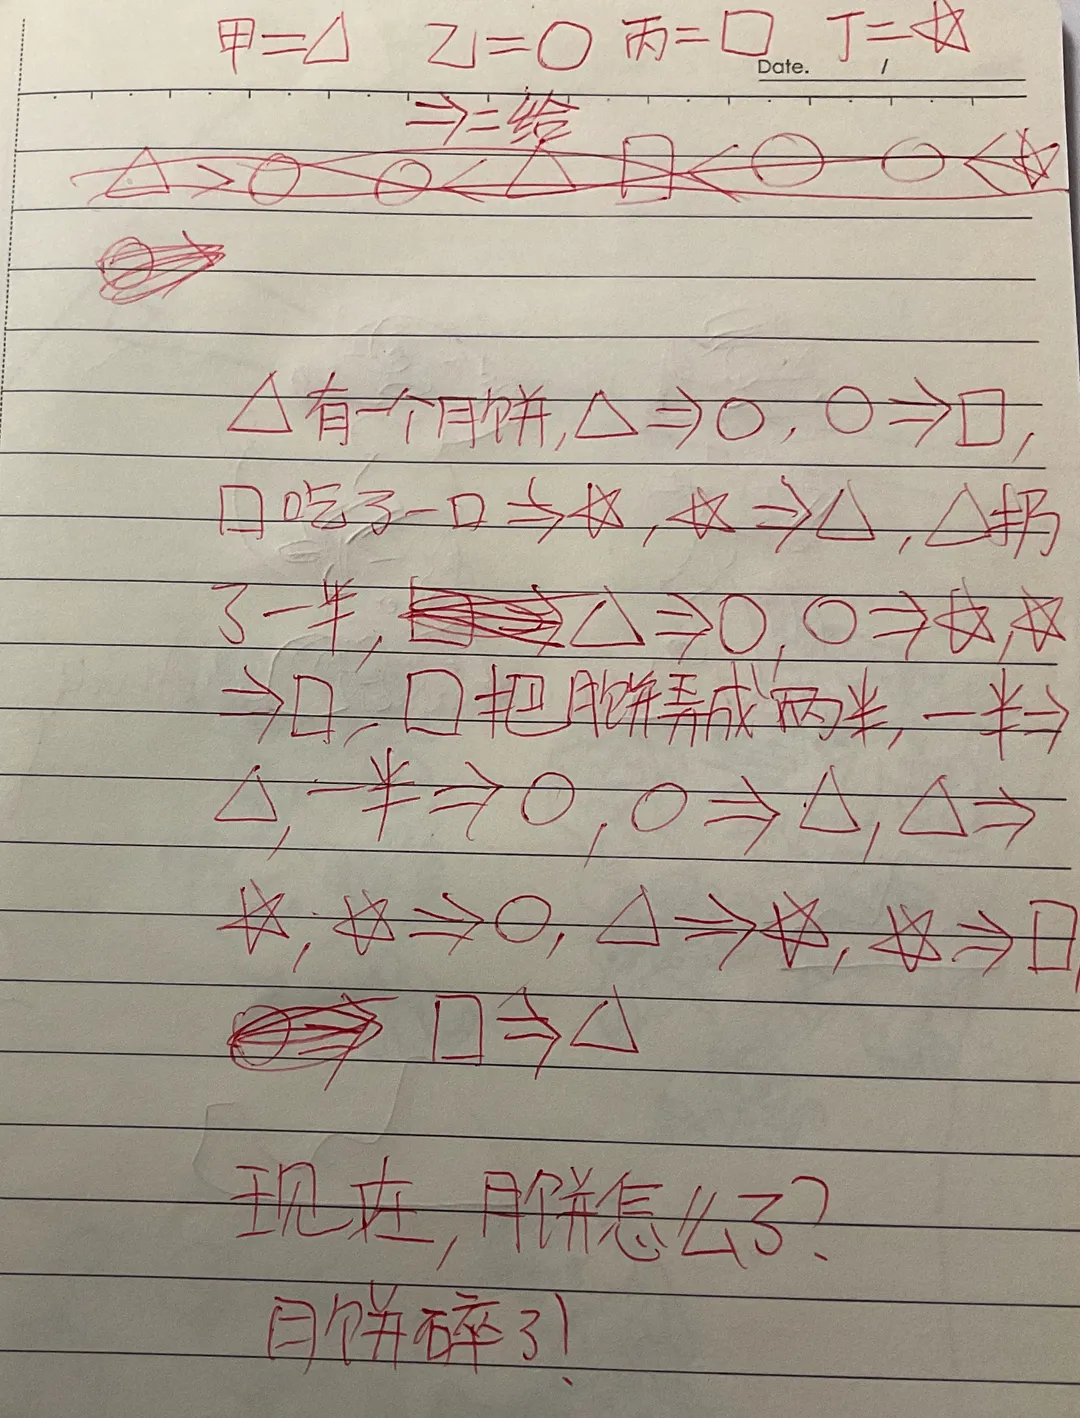 甲=△ 乙=○ 丙=□ 丁=☆
Date. /
⇒=给
△>○ ○<△ □<○ ○<☆
△有一个月饼,△⇒○,○⇒□,
□吃了一口⇒☆,☆⇒△,△扔
了一半,△⇒○,○⇒☆,☆
⇒□,□把月饼弄成两半,一半⇒
△,一半⇒○,○⇒△,△⇒
☆,☆⇒○,△⇒☆,☆⇒□,
□⇒△
现在,月饼怎么了?
月饼碎了!